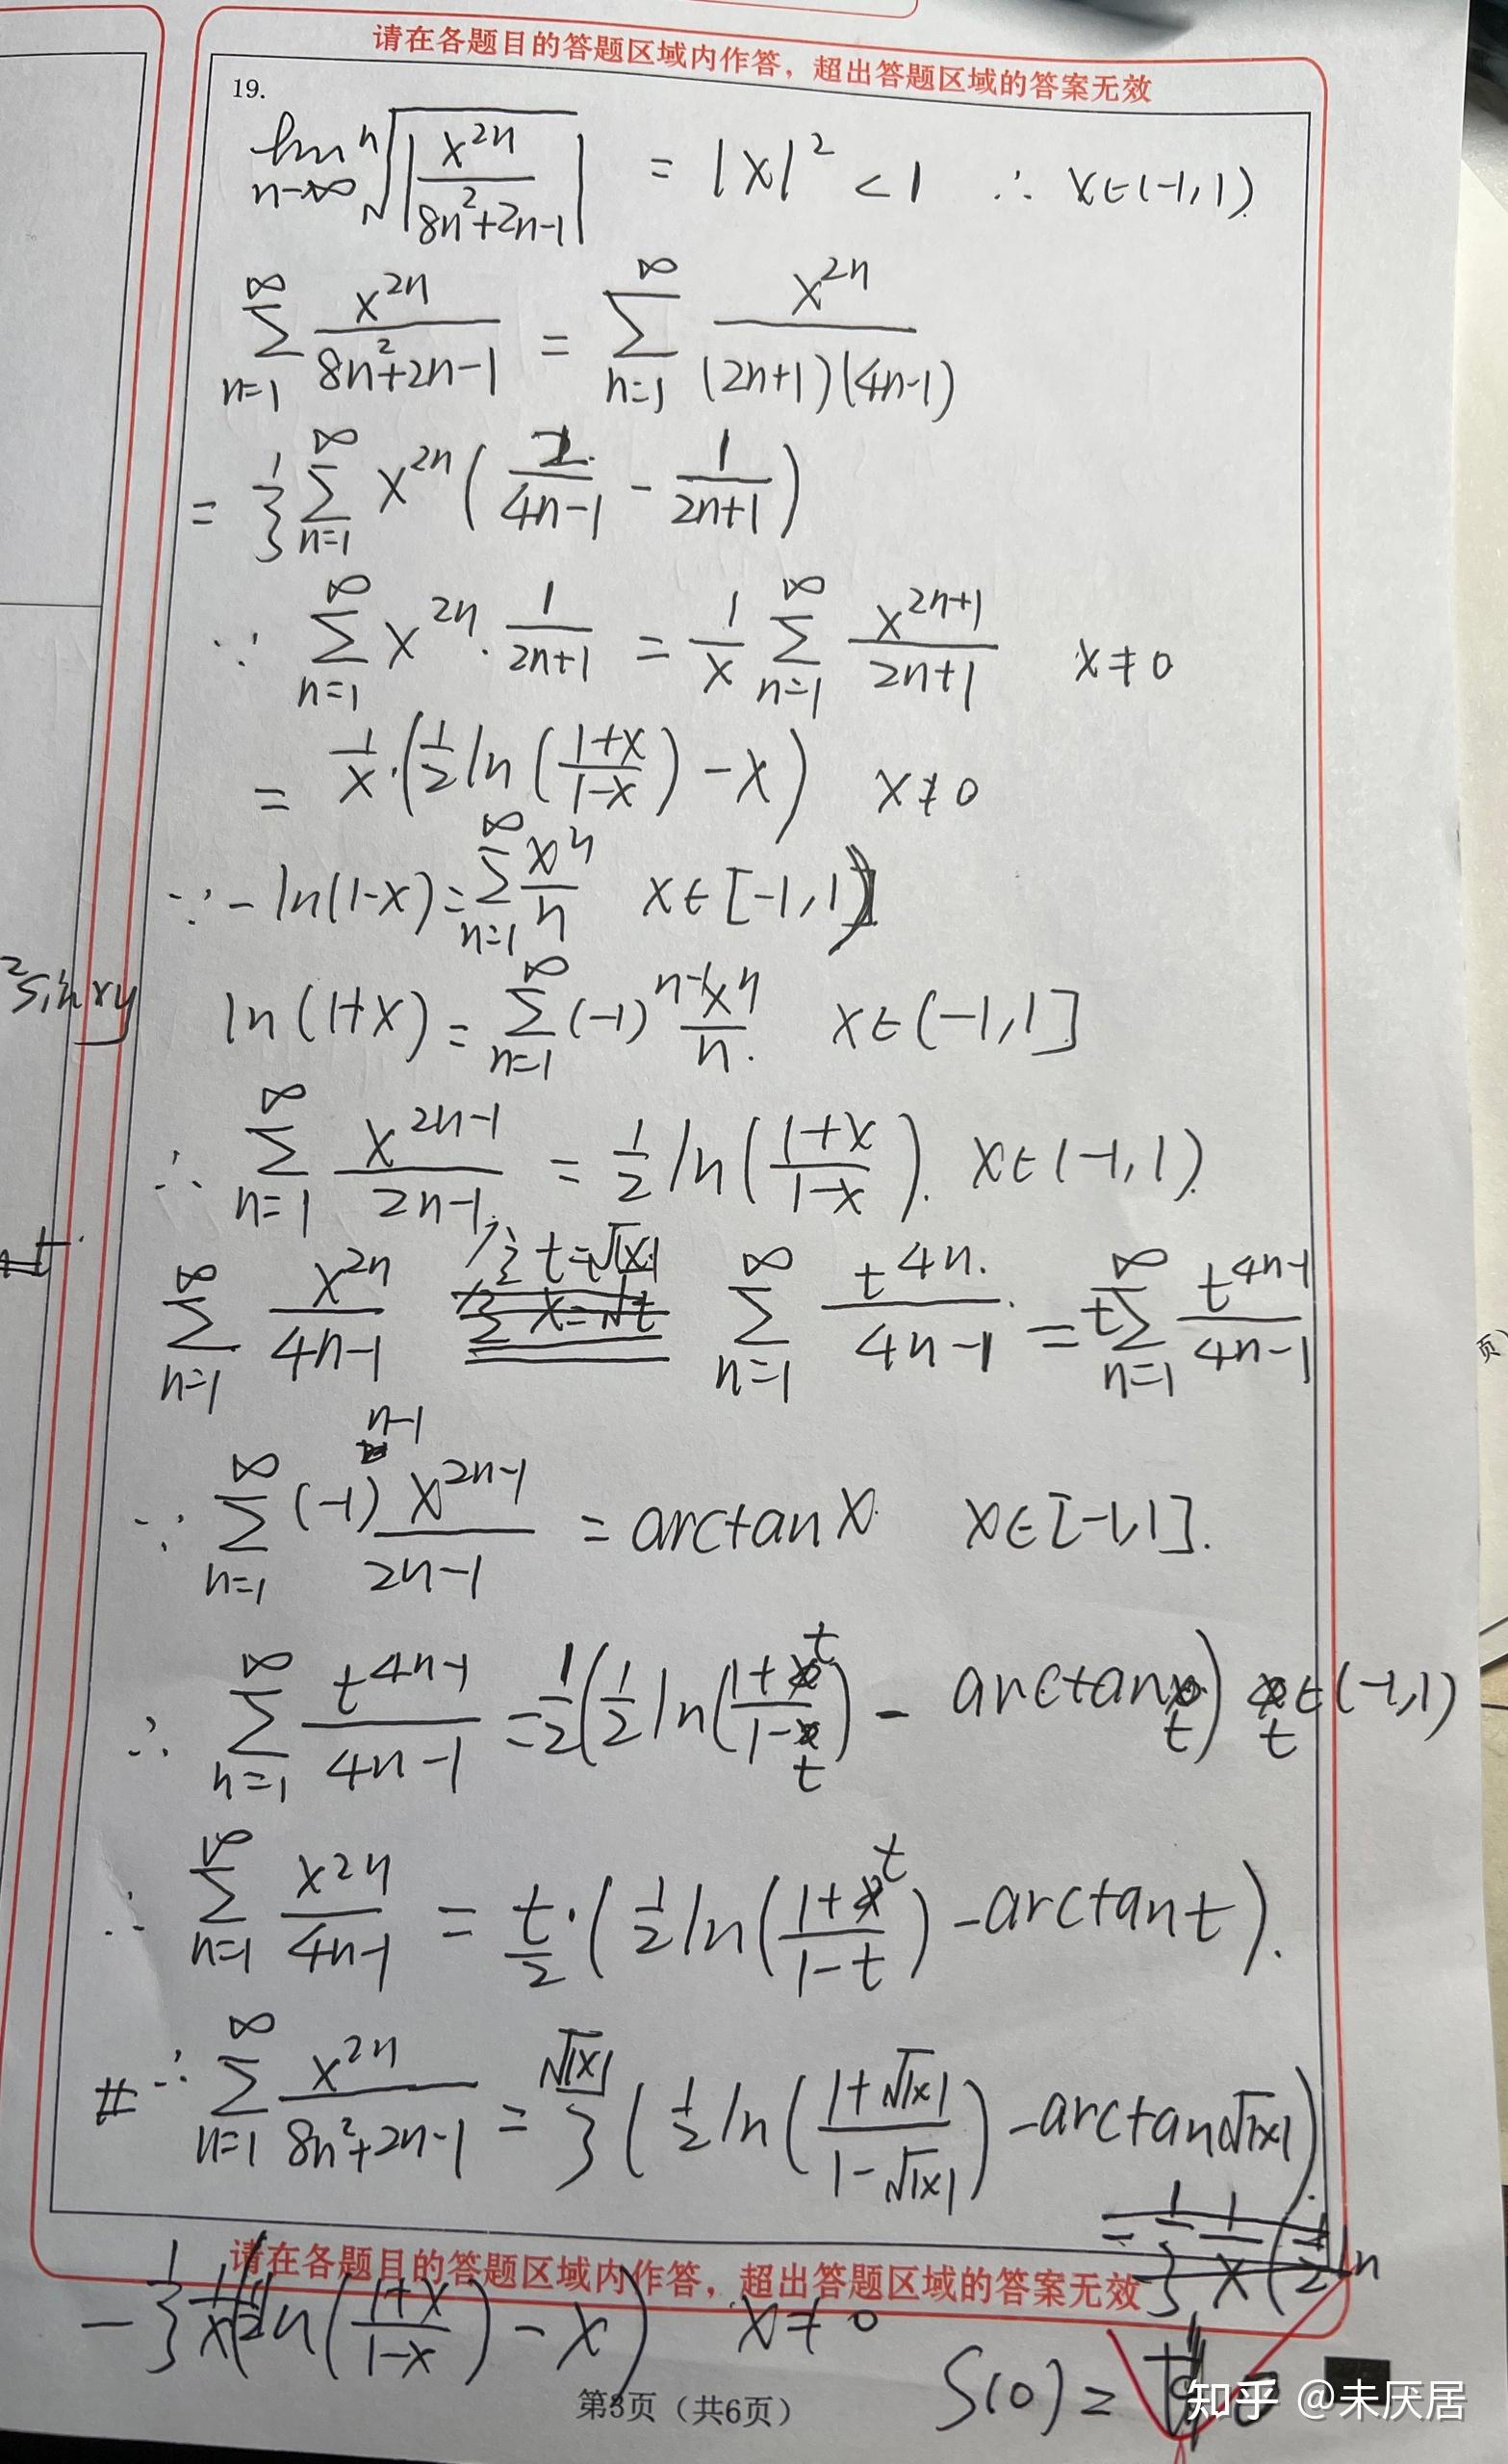 请在各题目的答题区域内作答，超出答题区域的答案无效
19.
lim n→∞ ⁿ√|x^{2n}/(8n²+2n-1)| = |x|² < 1 ∴ x∈(-1,1)
∑_{n=1}^{∞} x^{2n}/(8n²+2n-1) = ∑_{n=1}^{∞} x^{2n}/((2n+1)(4n-1))
= 1/3 ∑_{n=1}^{∞} x^{2n} (2/(4n-1) - 1/(2n+1))
∵ ∑_{n=1}^{∞} x^{2n} · 1/(2n+1) = 1/x ∑_{n=1}^{∞} x^{2n+1}/(2n+1) x≠0
= 1/x · (1/2 ln((1+x)/(1-x)) - x) x≠0
∵ -ln(1-x) = ∑_{n=1}^{∞} x^n/n x∈[-1,1)
²sin xy
ln(1+x) = ∑_{n=1}^{∞} (-1)^{n-1} x^n/n. x∈(-1,1]
∴ ∑_{n=1}^{∞} x^{2n-1}/(2n-1) = 1/2 ln((1+x)/(1-x)). x∈(-1,1).
∑_{n=1}^{∞} x^{2n}/(4n-1) 令 t=√|x| ∑_{n=1}^{∞} t^{4n}/(4n-1) = t∑_{n=1}^{∞} t^{4n-1}/(4n-1)
页）
∵ ∑_{n=1}^{∞} (-1)^{n-1} x^{2n-1}/(2n-1) = arctan x x∈[-1,1].
∴ ∑_{n=1}^{∞} t^{4n-1}/(4n-1) = 1/2 (1/2 ln((1+t)/(1-t)) - arctan t) t∈(-1,1)
∴ ∑_{n=1}^{∞} x^{2n}/(4n-1) = t/2 · (1/2 ln((1+t)/(1-t)) - arctan t).
# ∴ ∑_{n=1}^{∞} x^{2n}/(8n²+2n-1) = √|x|/3 (1/2 ln((1+√|x|)/(1-√|x|)) - arctan√|x|)
请在各题目的答题区域内作答，超出答题区域的答案无效
- 1/3 1/x (1/2 ln((1+x)/(1-x)) - x) x≠0
S(0) = 0
第3页（共6页）
知乎 @未厌居